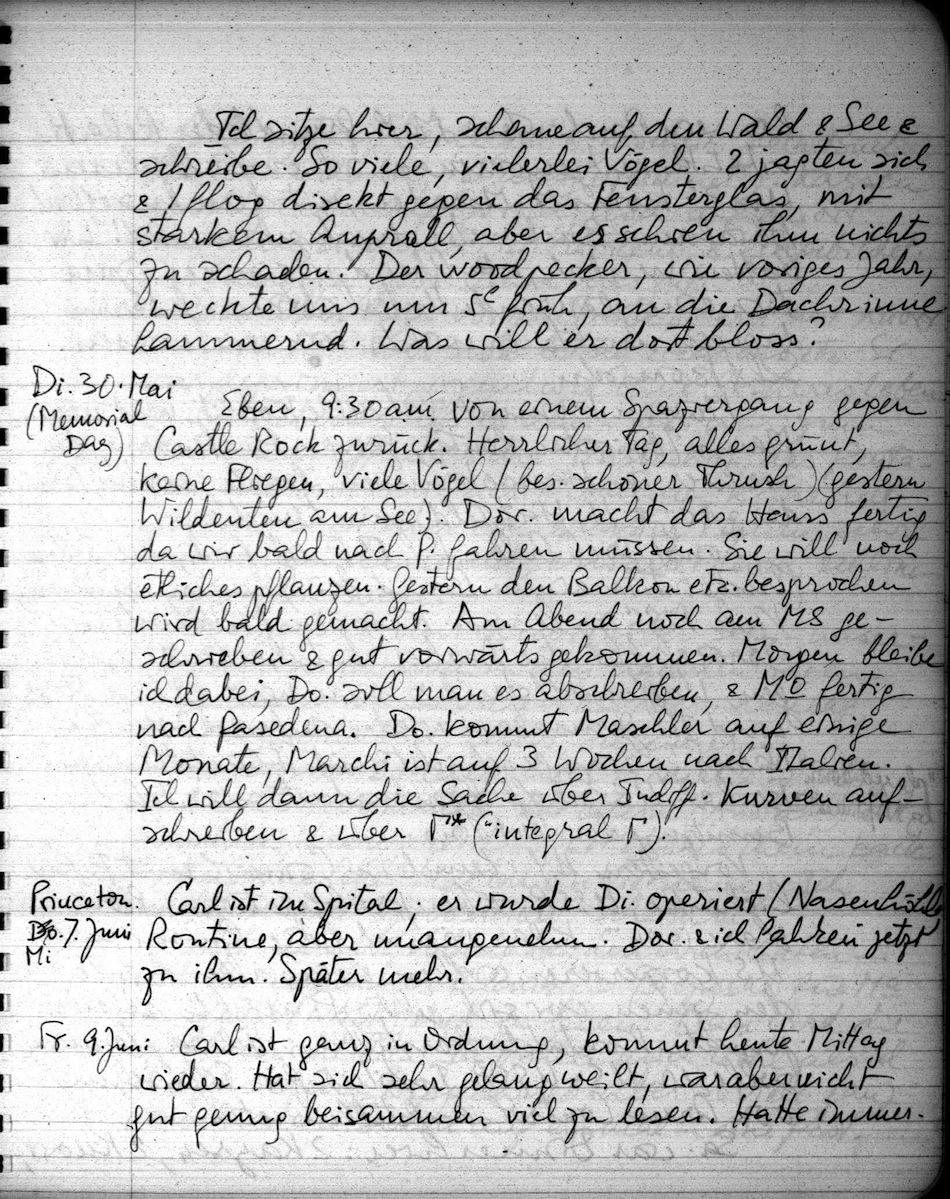 Ich sitze hier, schaue auf den Wald & See &
schreibe. So viele, vielerlei Vögel. 2 jagten sich
& 1 flog direkt gegen das Fensterglas, mit
starkem Anprall, aber es schien ihm nichts
zu schaden. Der woodpecker, wie voriges Jahr,
weckte uns um 5h früh, an die Dachrinne
hämmernd. Was will er dort bloss?
Di. 30. Mai
(Memorial
Day)
Eben, 9:30am von einem Spaziergang gegen
Castle Rock zurück. Herrlicher Tag, alles grünt,
keine Fliegen, viele Vögel (bes. schöner Thrush) (gestern
Wildenten am See). Dor. macht das Haus fertig
da wir bald nach P. fahren müssen. Sie will noch
etliches pflanzen. Gestern den Balkon etz. besprochen
wird bald gemacht. Am Abend noch am MS ge-
schrieben & gut vorwärts gekommen. Morgen bleibe
ich dabei, Do. soll man es abschreiben, & Mo fertig
nach Pasedena. Do. kommt Maschler auf einige
Monate, Marchi ist auf 3 Wochen nach Italien.
Ich will dann die Sache über Indiff. Kurven auf-
schreiben & über Γ* ("integral Γ).
Princeton.
Do. 7. Juni
Mi
Carl ist im Spital, er wurde Di. operiert (Nasenhöhle
Routine, aber unangenehm. Dor. & ich fahren jetzt
zu ihm. Später mehr.
Fr. 9. Juni Carl ist ganz in Ordnung, kommt heute Mittag
wieder. Hat sich sehr gelangweilt, war aber nicht
gut genug beisammen viel zu lesen. Hatte immer.